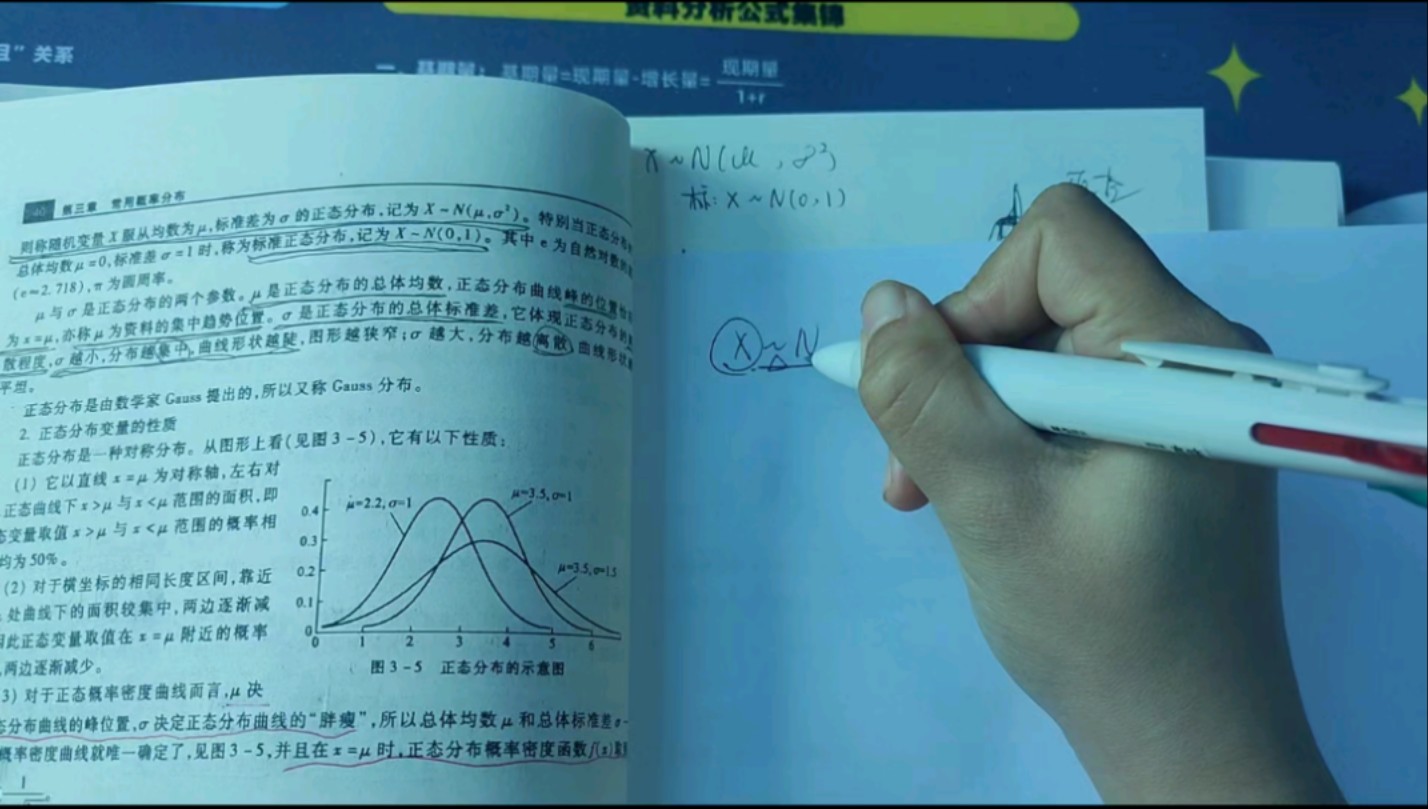 资料分析公式集锦
且”关系
一、基期量：基期量=现期量-增长量=现期量/1+r
40 第三章 常用概率分布
则称随机变量 X 服从均数为 μ,标准差为 σ 的正态分布,记为 X~N(μ,σ²)。特别当正态分布
总体均数 μ=0,标准差 σ=1 时,称为标准正态分布,记为 X~N(0,1)。其中 e 为自然对数的
(e≈2.718),π 为圆周率。
μ 与 σ 是正态分布的两个参数。μ 是正态分布的总体均数,正态分布曲线峰的位置
为 x=μ,亦称 μ 为资料的集中趋势位置。σ 是正态分布的总体标准差,它体现正态分布的
散程度,σ 越小,分布越集中,曲线形状越陡,图形越狭窄;σ 越大,分布越离散,曲线形状
平坦。
正态分布是由数学家 Gauss 提出的,所以又称 Gauss 分布。
2. 正态分布变量的性质
正态分布是一种对称分布。从图形上看(见图 3-5),它有以下性质:
(1) 它以直线 x=μ 为对称轴,左右对
正态曲线下 x>μ 与 x<μ 范围的面积,即
态变量取值 x>μ 与 x<μ 范围的概率相
均为 50%。
(2) 对于横坐标的相同长度区间,靠近
处曲线下的面积较集中,两边逐渐减
因此正态变量取值在 x=μ 附近的概率
,两边逐渐减少。
3) 对于正态概率密度曲线而言,μ 决
态分布曲线的峰位置,σ 决定正态分布曲线的“胖瘦”,所以总体均数 μ 和总体标准差 σ
概率密度曲线就唯一确定了,见图 3-5,并且在 x=μ 时,正态分布概率密度函数 f(x)
1
μ=2.2,σ=1
μ=3.5,σ=1
μ=3.5,σ=1.5
0.4
0.3
0.2
0.1
0
0 1 2 3 4 5 6
图 3-5 正态分布的示意图
X~N(μ,σ²)
标:X~N(0,1)
X~N